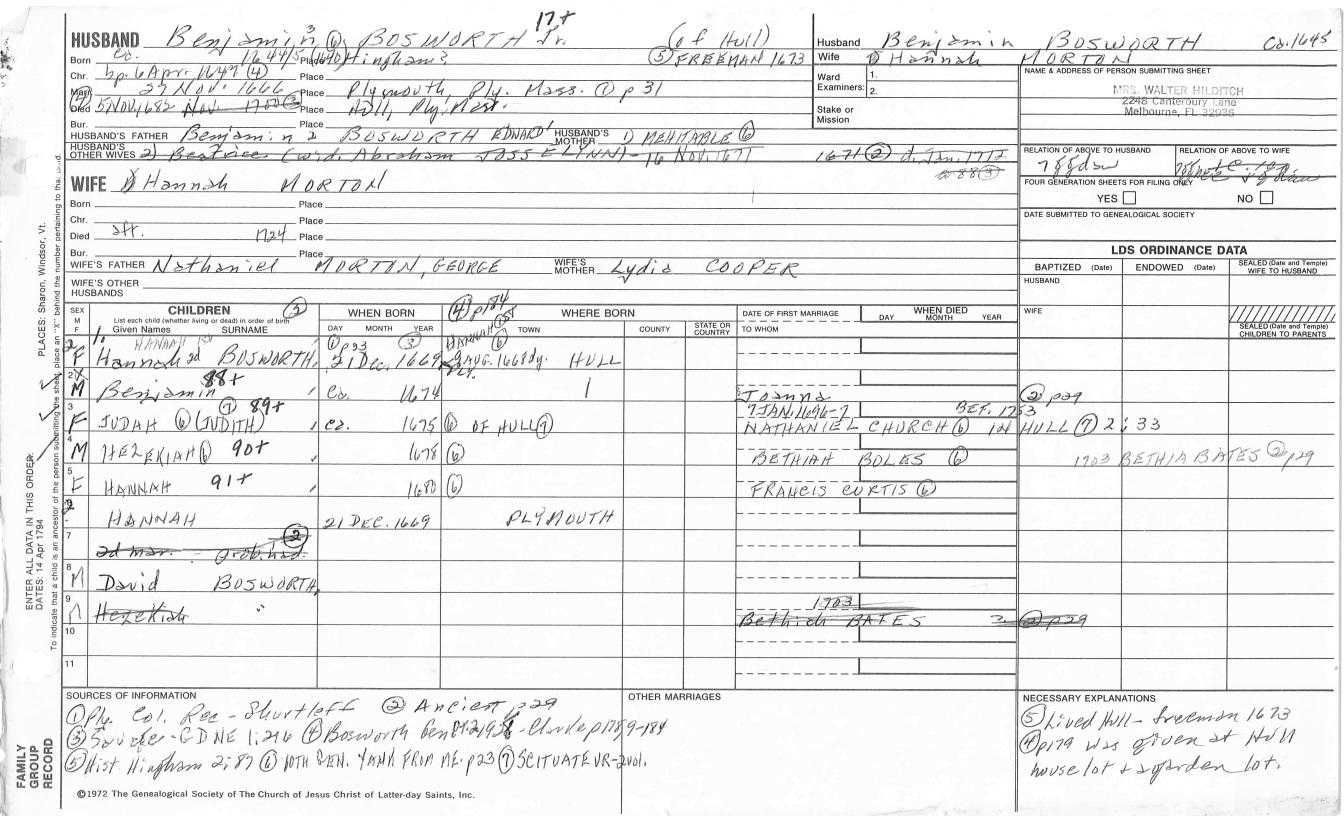 17+
HUSBAND Benjamin 3 ⑥ BOSWORTH Jr. (of Hull)
Born Ca. 1644/5 Place Hingham? ⑤ FREEMAN 1673
Chr. bp. 6 Apr. 1647 (4) Place
Marr. 27 Nov. 1666 Place Plymouth, Ply. Mass. ① p 31
Died 5 NOV, 1682 Nov. 1700 ③ Place Hull, Ply. Mass.
Bur. Place
HUSBAND'S FATHER Benjamin 2 BOSWORTH EDWARD1 HUSBAND'S MOTHER 1) MEHITABLE ⑥
HUSBAND'S OTHER WIVES 2) Beatrice (wid. Abraham JOSSELYNN) - 16 Nov. 1671 1671 ② d. Jan. 1712
Husband Benjamin BOSWORTH Ca. 1645
Wife 1) Hannah MORTON
Ward Examiners: 1.
2.
Stake or Mission
NAME & ADDRESS OF PERSON SUBMITTING SHEET
MRS. WALTER HILDITCH
2248 Canterbury Lane
Melbourne, FL 32935
RELATION OF ABOVE TO HUSBAND
7ggdau
RELATION OF ABOVE TO WIFE
FOUR GENERATION SHEETS FOR FILING ONLY
YES NO
DATE SUBMITTED TO GENEALOGICAL SOCIETY
WIFE 1) Hannah MORTON
Born Place
Chr. Place
Died aft. 1724 Place
Bur. Place
WIFE'S FATHER Nathaniel MORTON, GEORGE WIFE'S MOTHER Lydia COOPER
WIFE'S OTHER HUSBANDS
LDS ORDINANCE DATA
BAPTIZED (Date) ENDOWED (Date) SEALED (Date and Temple) WIFE TO HUSBAND
HUSBAND
WIFE
SEALED (Date and Temple) CHILDREN TO PARENTS
SEX M F
CHILDREN ③
List each child (whether living or dead) in order of birth
Given Names SURNAME
WHEN BORN
DAY MONTH YEAR
④ p184
WHERE BORN
TOWN COUNTY STATE OR COUNTRY
DATE OF FIRST MARRIAGE
TO WHOM
WHEN DIED
DAY MONTH YEAR
1. HANNAH 1st ① p23 ③ HANNAH 1ST ⑥
F Hannah 2d BOSWORTH, 21 Dec. 1669 9 AUG. 1668 dy. PLY. HULL
2 M Benjamin 88+ Ca. 1674 Joanna ② p29
3 F JUDAH ⑥ (JUDITH) ⑦ 89+ ca. 1675 ⑥ OF HULL ⑦ 7 JAN. 1696-7 BEF. 1753
NATHANIEL CHURCH ⑥ IN HULL ⑦ 2:33
4 M HEZEKIAH ⑥ 90+ 1678 ⑥ BETHIAH BOLES ⑥ 1703 BETHIA BATES ② p29
5 F HANNAH 91+ 1680 ⑥ FRANCIS CURTIS ⑥
HANNAH 21 DEC. 1669 PLYMOUTH
7 2d mar. prob. had ②
8 M David BOSWORTH,
9 M Hezekiah " 1703
Bethiah BATES ② p29
10
11
SOURCES OF INFORMATION
① Ply. Col. Rec - Shurtleff ② Ancient p29
③ Savage - GDNE 1:216 ④ Bosworth Gen - Clarke p178, 9-184
⑤ Hist Hingham 2:87 ⑥ p23 ⑦ SCITUATE VR-2vol.
OTHER MARRIAGES
NECESSARY EXPLANATIONS
⑤ Lived Hull - freeman 1673
④ p179 was given at Hull
house lot + a garden lot.
©1972 The Genealogical Society of The Church of Jesus Christ of Latter-day Saints, Inc.
FAMILY GROUP RECORD
ENTER ALL DATA IN THIS ORDER
DATES: 14 Apr 1794
PLACES: Sharon, Windsor, Vt.
To indicate that a child is an ancestor of the person submitting the sheet, place an "X" behind the number pertaining to that child.